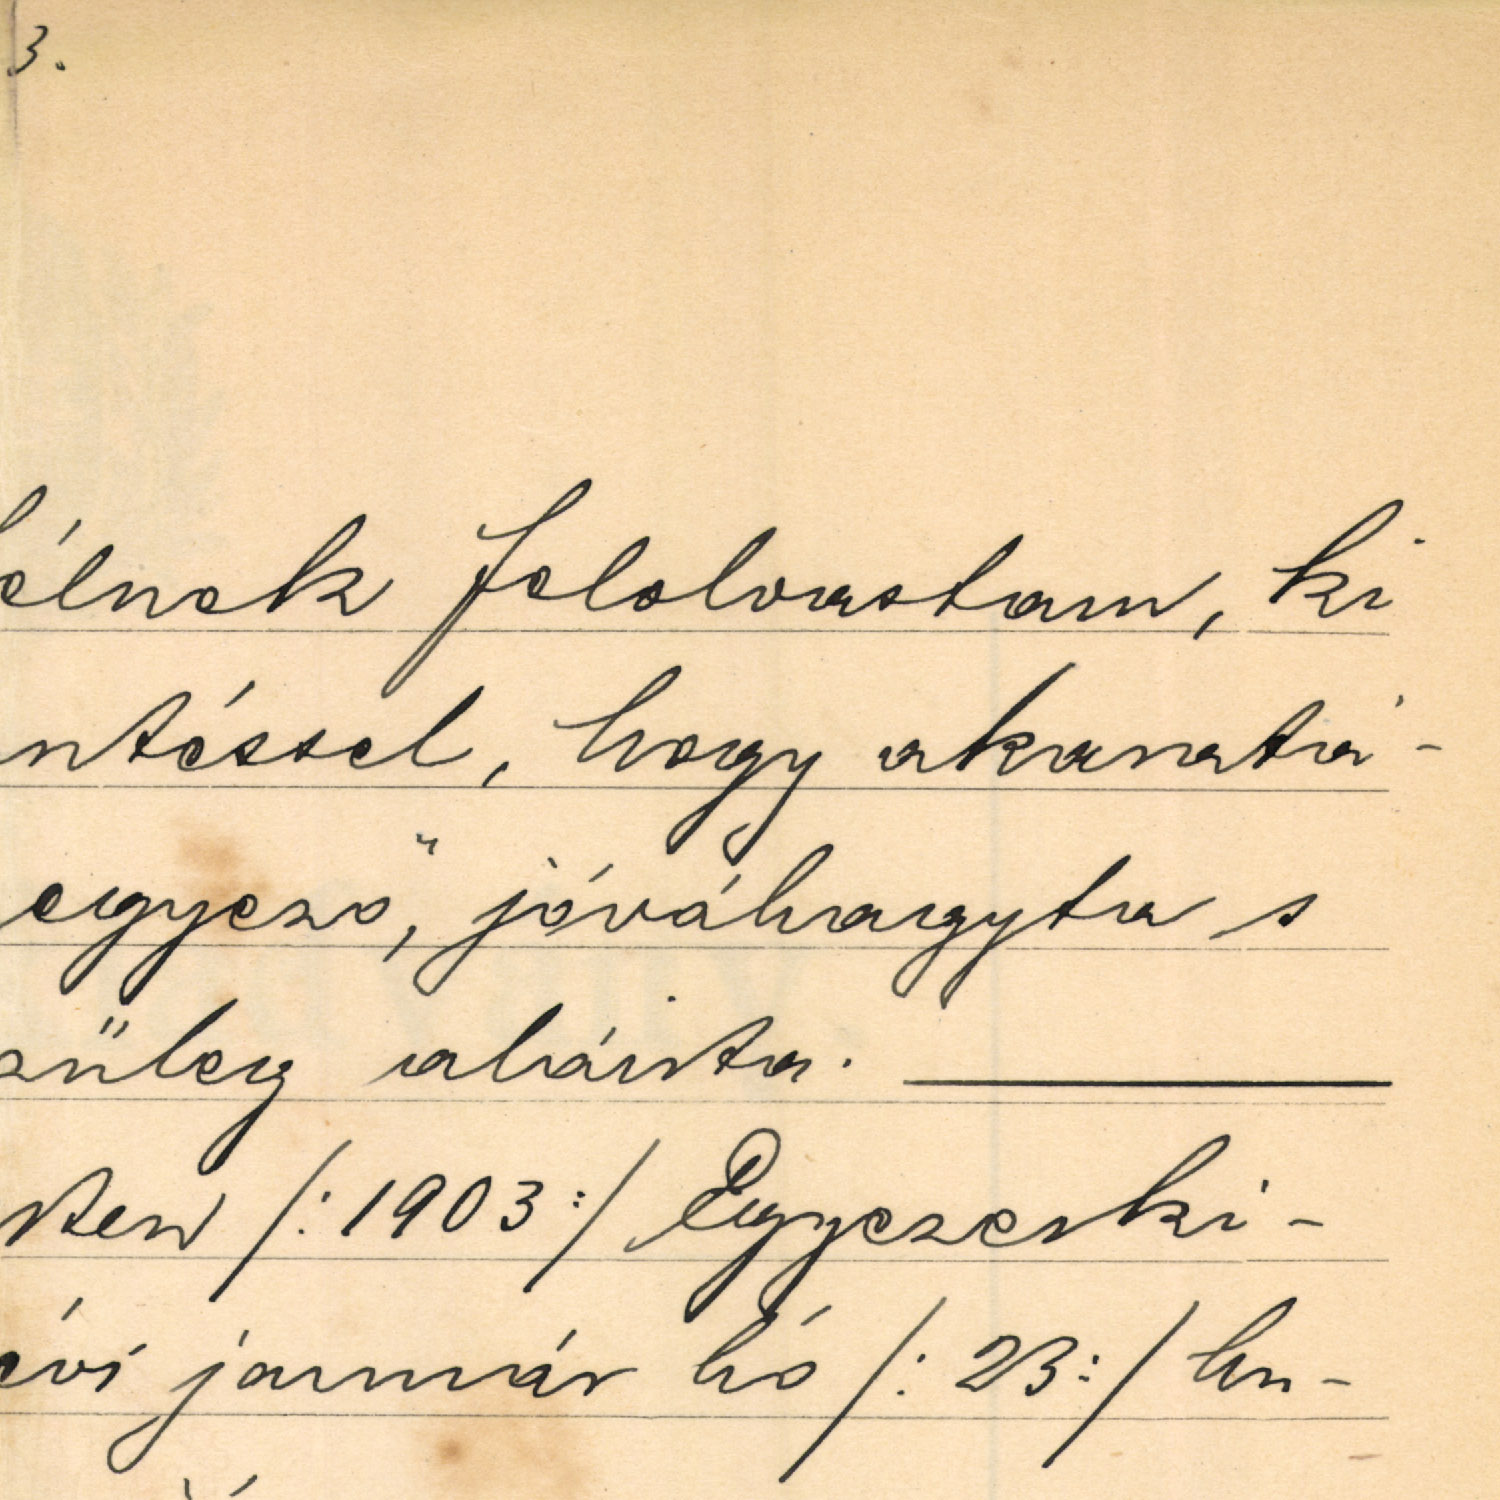 3.
élnek felolvastam, ki
ntéssel, hogy akaratá-
egyező, jóváhagyta s
züleg aláirta.
sten /: 1903 :/ Egyezerki-
évi január hó /: 23 :/ hu-